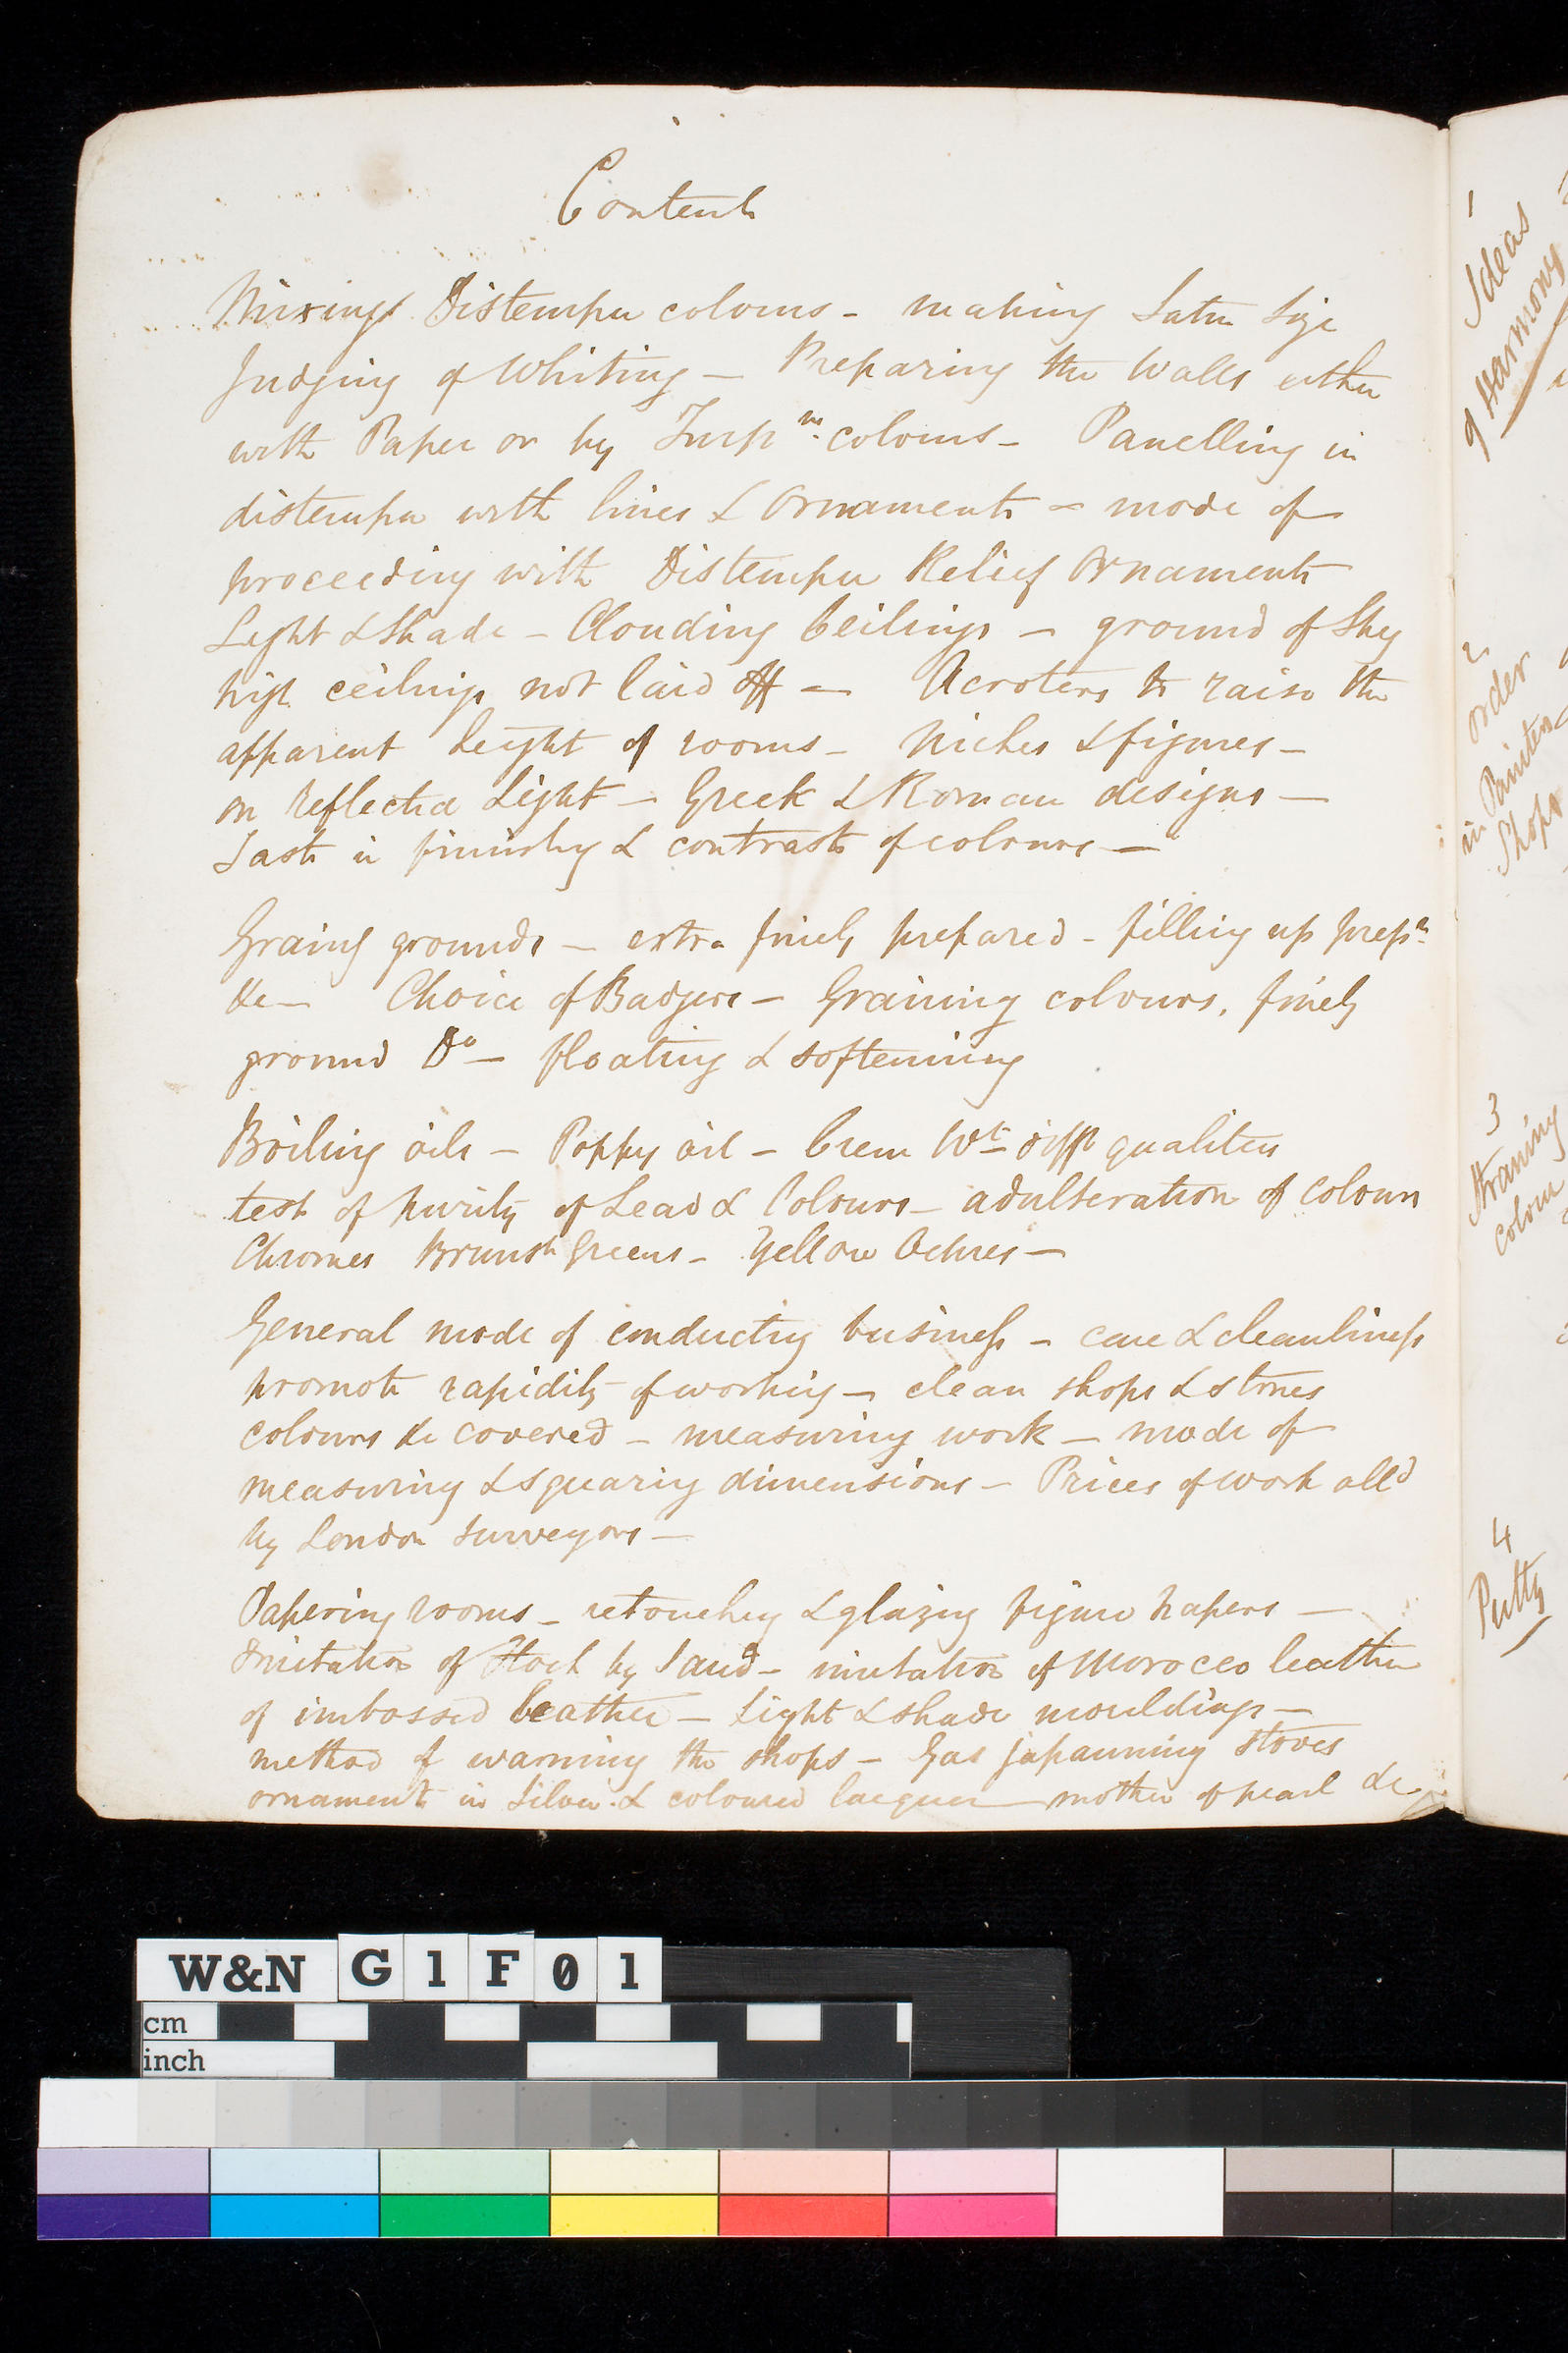 Contents
Mixing Distemper colours - making Satin Size
Judging of Whiting - Preparing the Walls either
with Paper or by Turpn. colours - Panelling in
distemper with lines & Ornaments - mode of
proceeding with Distemper Relief Ornaments
Light & Shade - Clouding Ceilings - ground of Sky
high ceilings not laid off - Acroters to raise the
apparent height of rooms - Niches & figures -
on reflected Light - Greek & Roman designs -
Taste in finishing & contrasts of colours -
Graing grounds - extra finely prepared - filling up prepn
&c - Choice of Badgers - Graining colours, finely
ground Do - floating & softening
Boiling oils - Poppy oil - Crem Wt difft qualities
test of purity of Lead & Colours - adulteration of colours
Chromes Brunsh Greens - Yellow Ochres -
General mode of conducting business - care & cleanliness
promote rapidity of working - clean shops & stones
colours &c covered - measuring work - mode of
measuring & squaring dimensions - Prices of work alld
by London Surveyors -
Papering rooms - retouching & glazing figure papers -
Imitation of Flock by Sand - imitation of Morocco leather
of imbossed leather - Light & shade mouldings -
method of warming the shops - Gas japanning stoves
ornaments in Silver & coloured lacquer - mother of pearl &c
1
Ideas
of Harmony
2
order
in Painters
Shops
3
Straining
colour
4
Putty
W&N G1F01
cm
inch